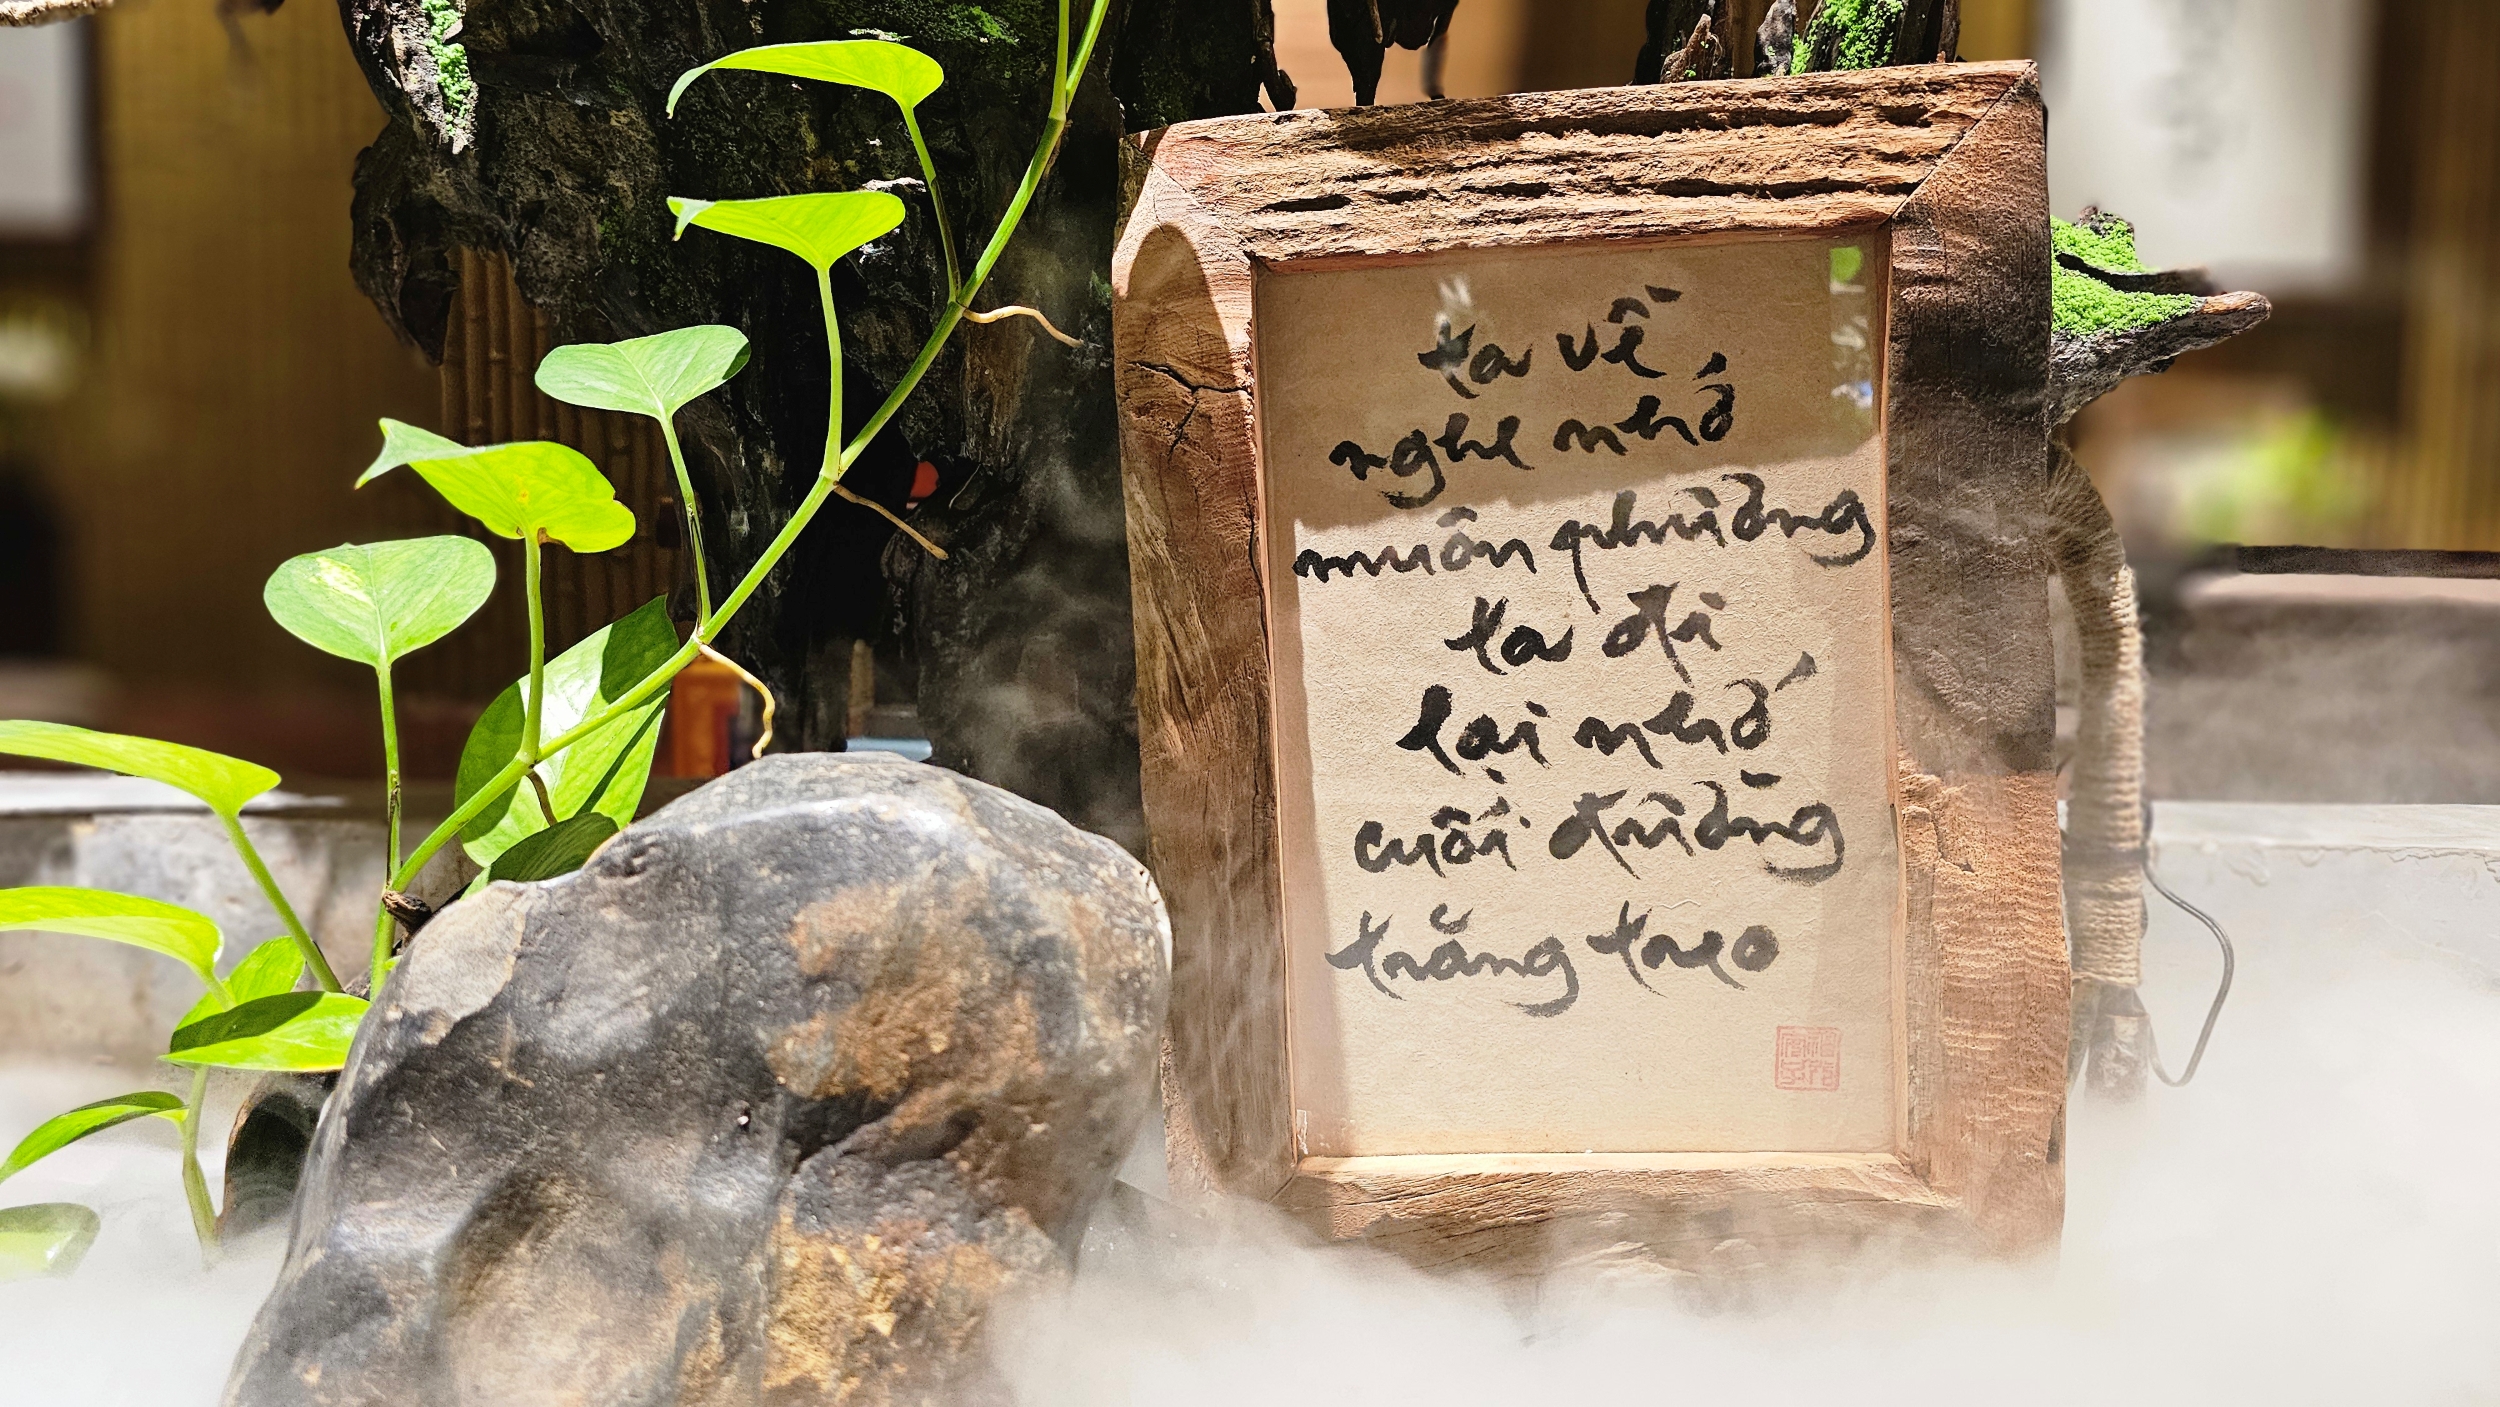 ta về
nghe nhớ
muôn phường
ta đi
lại nhớ
cuối đường
trăng treo